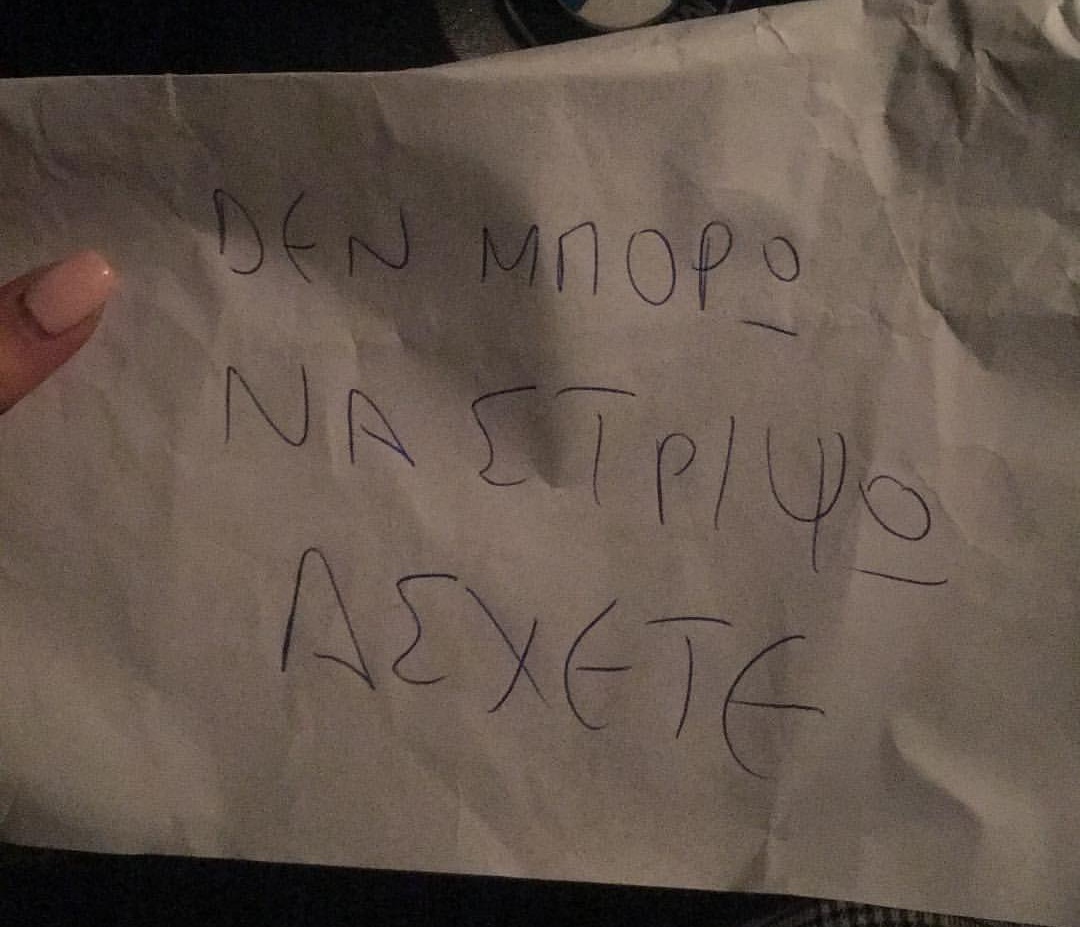 DEN ΜΠΟΡΩ
ΝΑ ΣΤΡΙΨΩ
ΑΣΧΕΤΕ